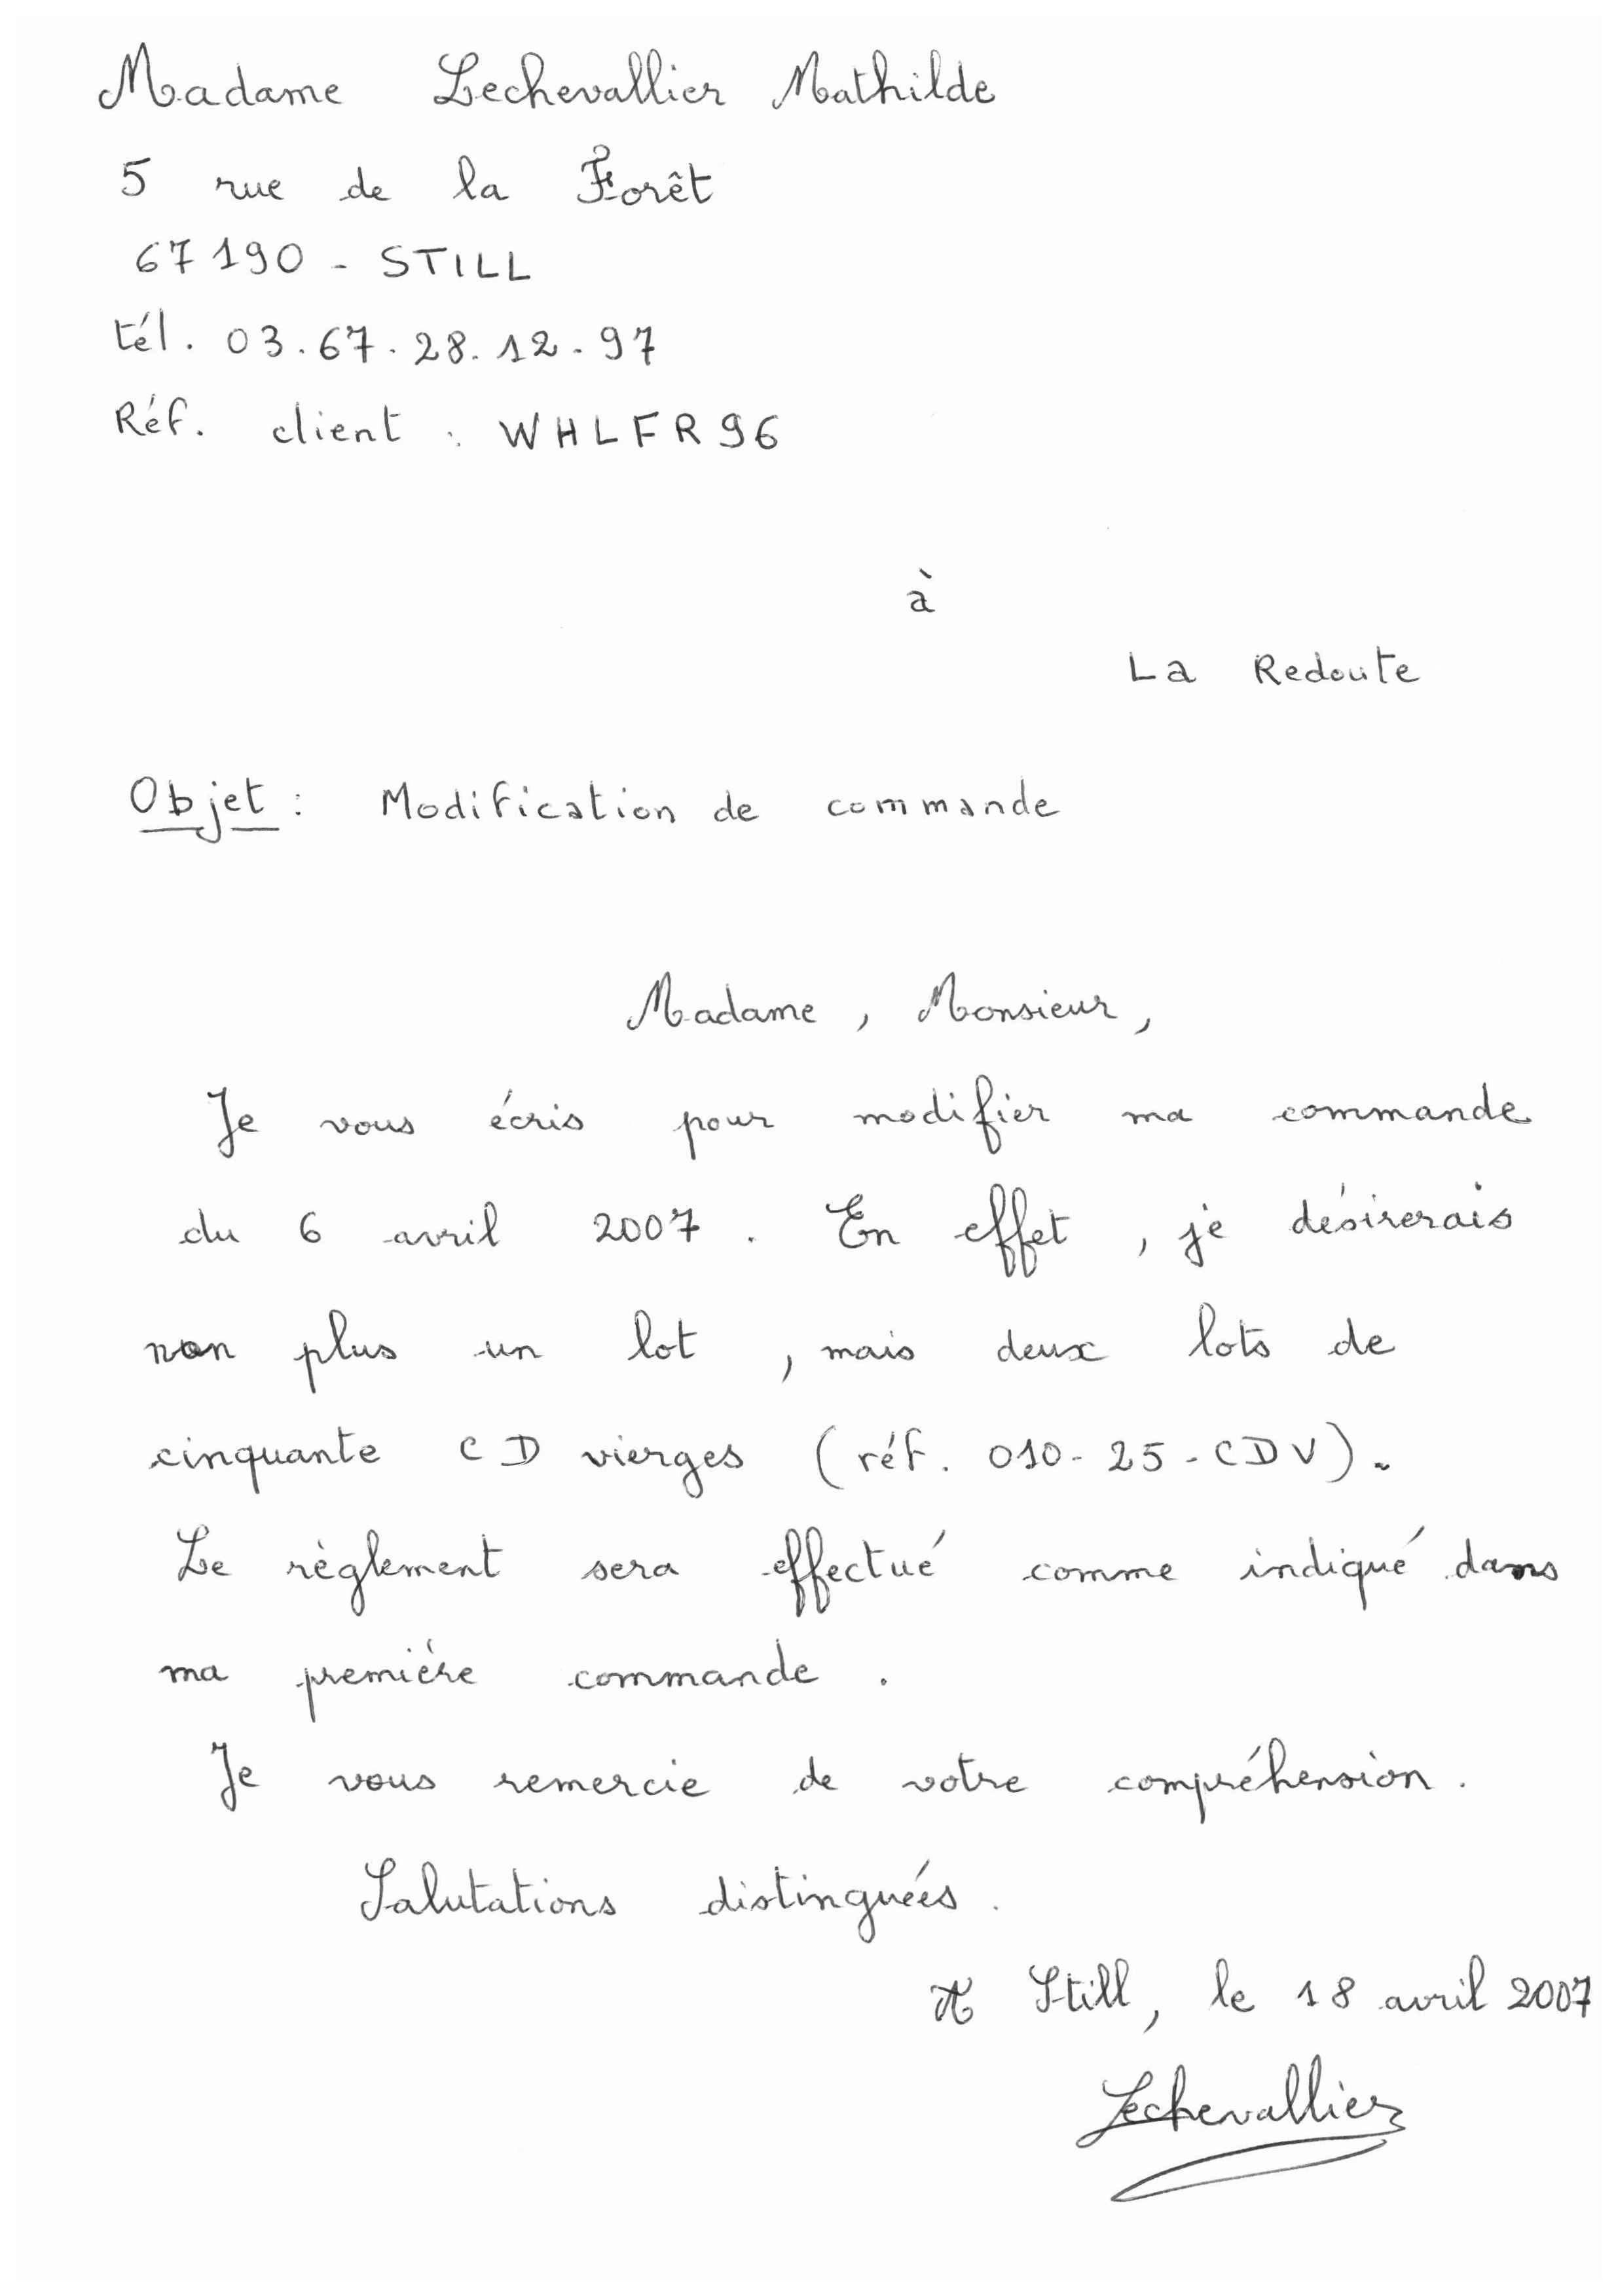 Madame Lechevallier Mathilde
5 rue de la Forêt
67190 - STILL
tél. 03.67.28.12.97
Réf. client : WHLFR96
à
La Redoute
Objet : Modification de commande
Madame, Monsieur,
Je vous écris pour modifier ma commande
du 6 avril 2007. En effet, je désirerais
non plus un lot, mais deux lots de
cinquante CD vierges (réf. 010-25-CDV).
Le règlement sera effectué comme indiqué dans
ma première commande.
Je vous remercie de votre compréhension.
Salutations distinguées.
A Still, le 18 avril 2007
Lechevallier